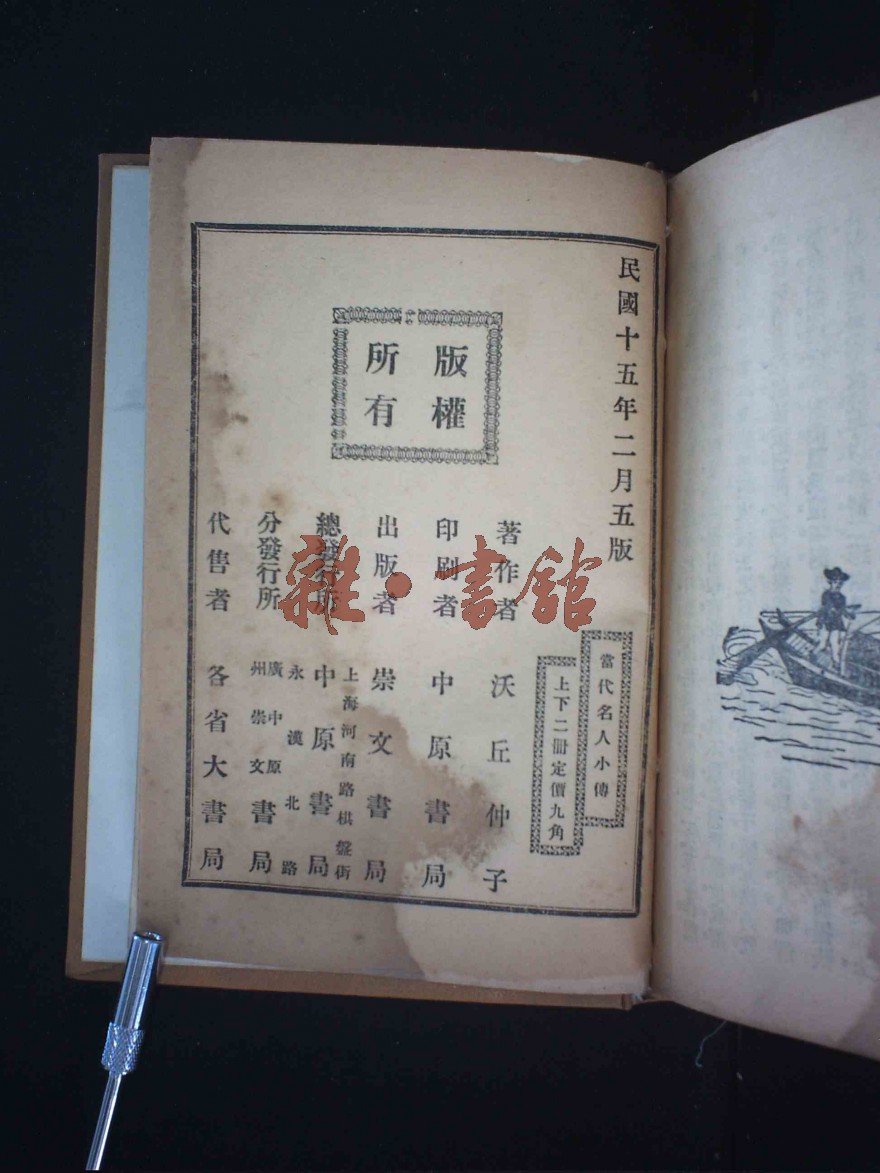 民國十五年二月五版
版權
所有
當代名人小傳
上下二冊定價九角
著作者 沃丘仲子
印刷者 中原書局
出版者 崇文書局
上海河南路棋盤街
總發行所 中原書局
永漢北路
分發行所 廣州 中原 崇文 書局
代售者 各省大書局
雜·書館